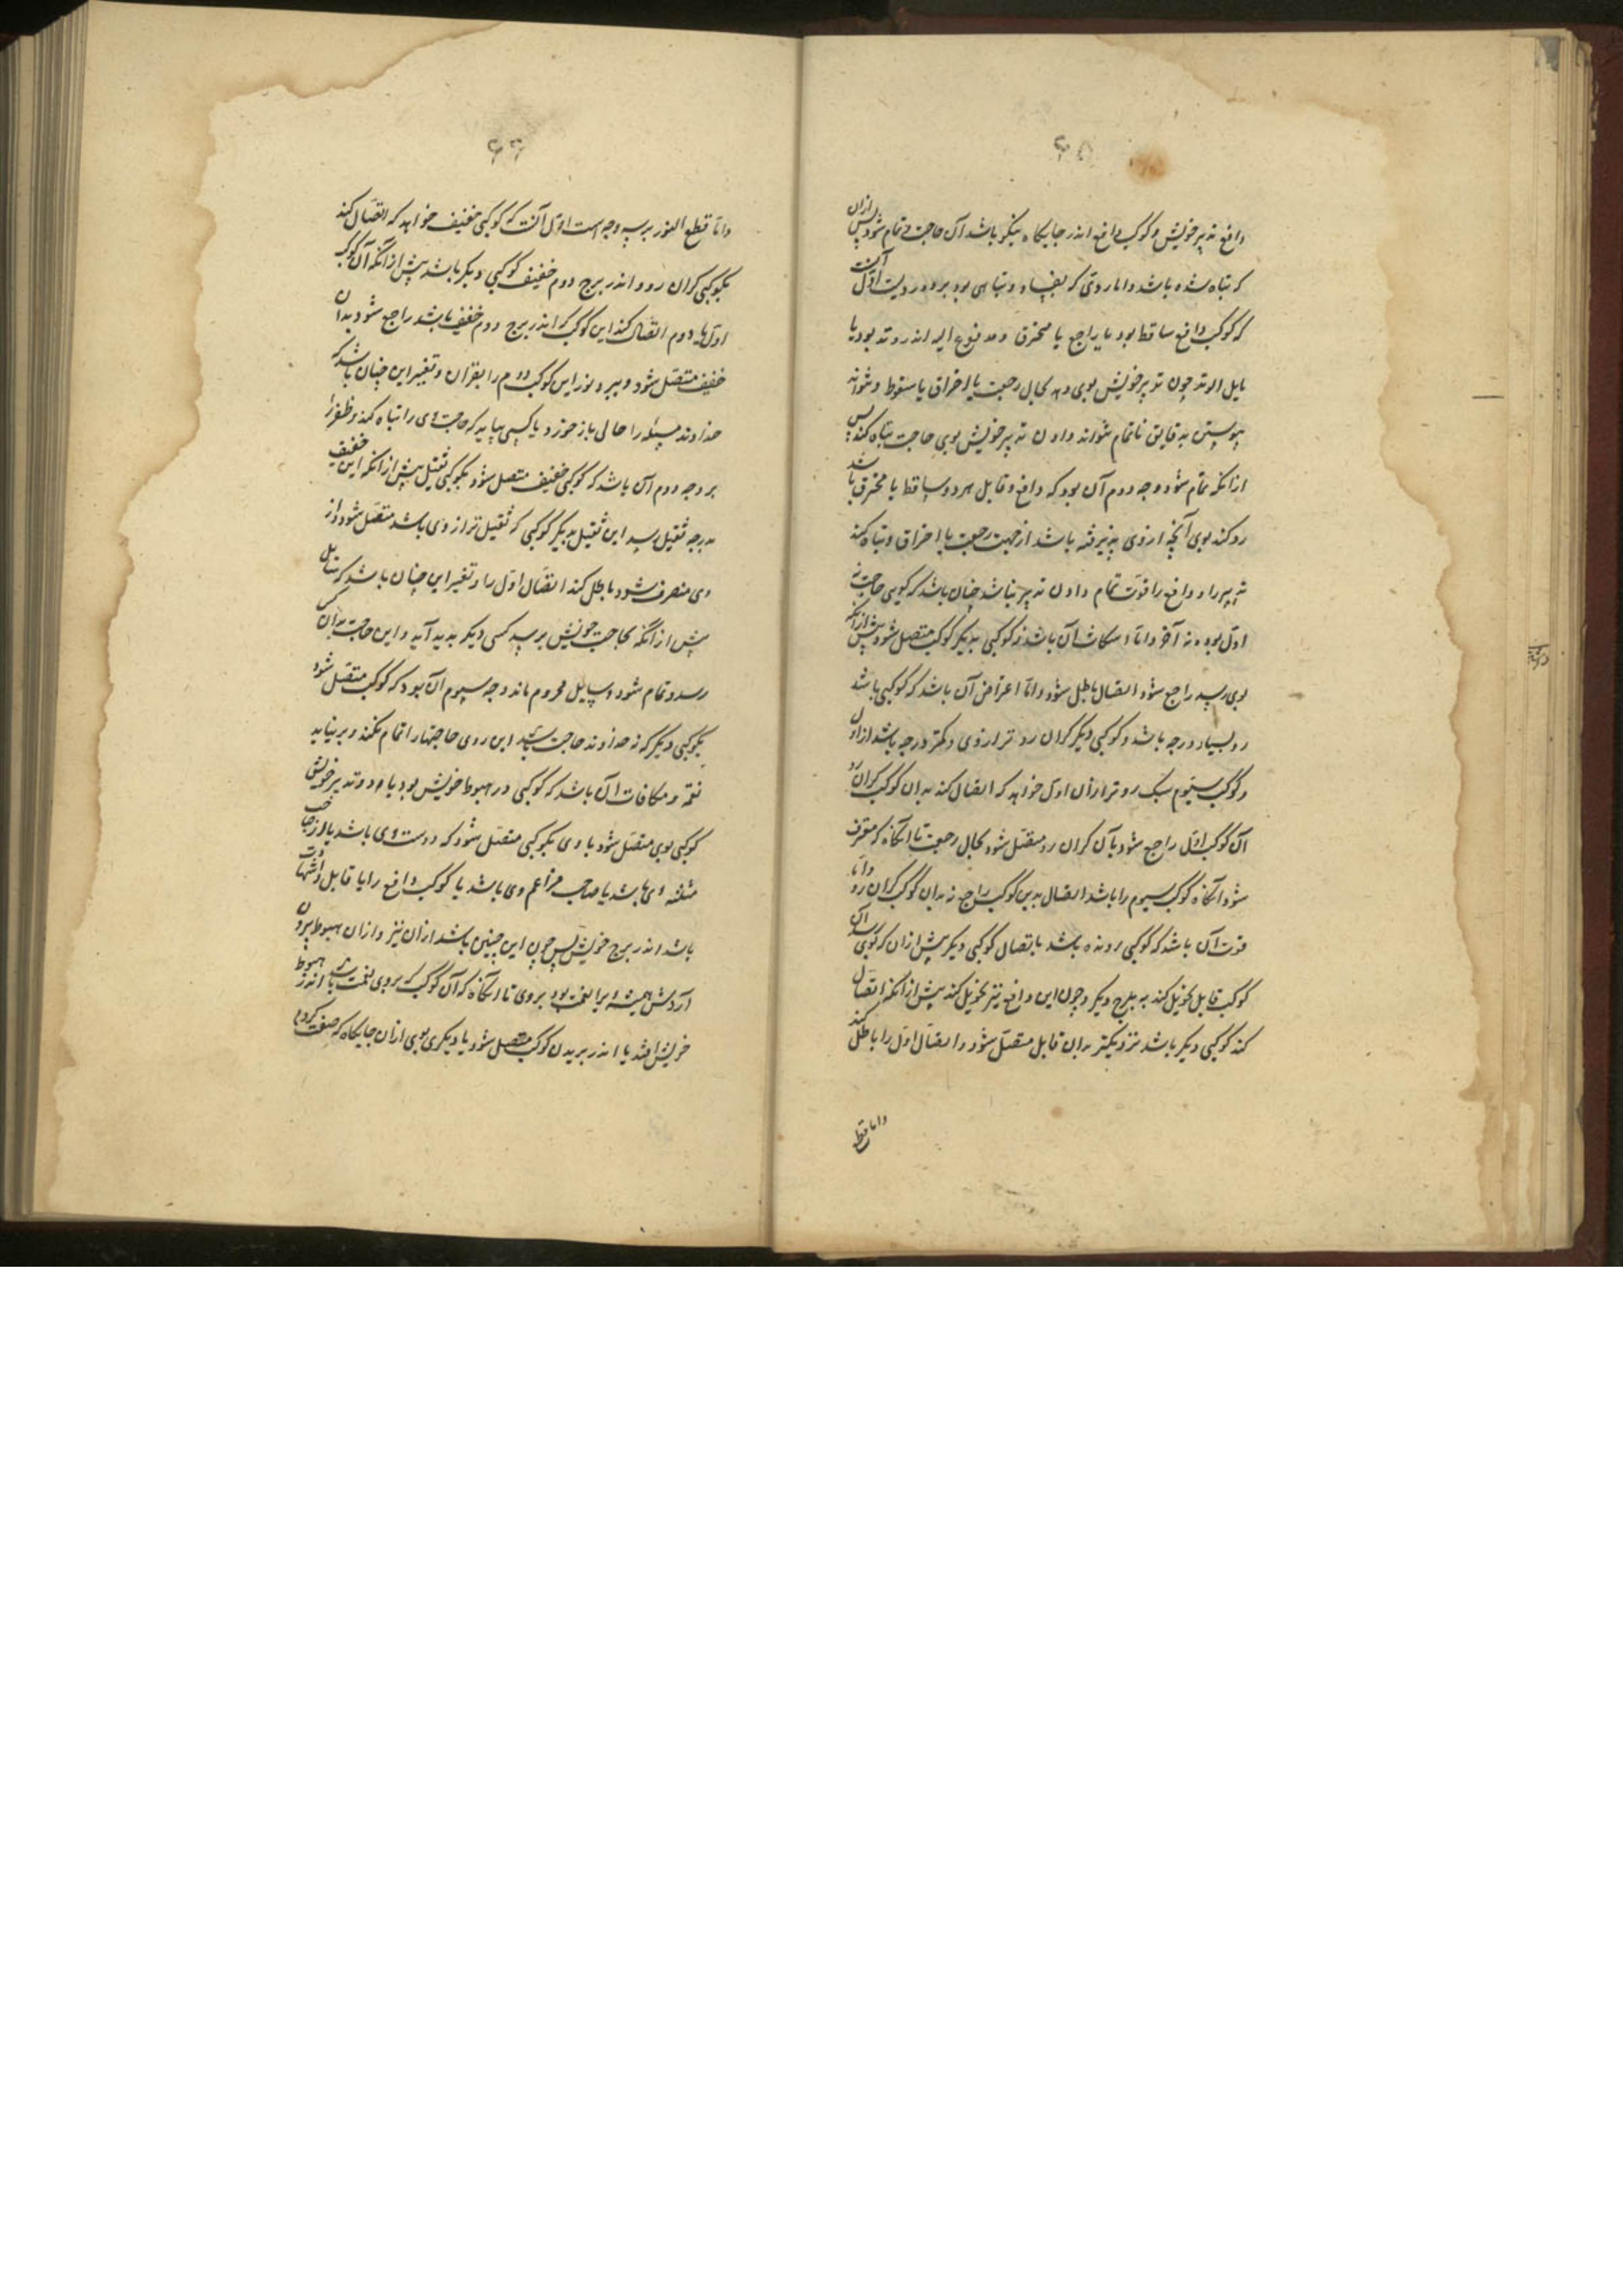 ۶۵
دافع تدبیر خویش و کوکب دافع اندر جایگاه نیکو باشد آن حاجت تمام شود پس ازان
که تباه شده باشد و اما ردی که بفساد و تباهی بود بر دو رویست اول آنست
که کوکب دافع ساقط بود یا راجع یا محترق و مدفوع الیه اندر وتد بود یا
مایل الوتد چون تدبیر خویش بوی دهد بحال رجعت یا احتراق یا سقوط و نتواند
پیوستن به قابل ناتمام نتواند دادن تدبیر خویش بوی حاجت تباه کند پس
ازانکه تمام شود وجه دوم آن بود که دافع و قابل هر دو ساقط یا محترق باشد
رد کند بوی آنچه از وی پذیرفته باشد از جهت رجعت یا احتراق و تباه کند
تدبیر را و دافع را قوت تمام دادن تدبیر نباشد چنان باشد که گویی حاجت نه
اول بود و نه آخر و اما انتکاث آن باشد که کوکبی بدیگر کوکب متصل شود پیش ازانکه
بوی رسد راجع شود اتصال باطل شود و اما اعتراض آن باشد که کوکبی باشد
رد بسیار درجه باشد و کوکبی دیگر گران رو تر از وی و کمتر درجه باشد از او
و کوکب سیوم سبک رو تر ازان اول خواهد که اتصال کند بدان کوکب گران رو
آن کوکب اول راجع شود بآن گران رو متصل شود بحال رجعت تا آنگاه که منصرف
شود آنگاه کوکب سیوم را باشد اتصال بدین کوکب راجع نه بدان کوکب گران رو و اما
فوت آن باشد که کوکبی رونده باشد باتصال کوکبی دیگر پیش ازان که بوی رسد آن
کوکب قابل تحویل کند به برج دیگر و چون این دافع نیز تحویل کند پیش ازانکه اتصال
کند کوکبی دیگر باشد نزدیکتر بدان قابل متصل شود و اتصال اول را باطل کند
و اما قطع
۶۶
و اما قطع النور بر سه وجه است اول آنست که کوکبی خفیف خواهد که اتصال کند
بکوکبی گران رو و اندر برج دوم خفیف کوکبی دیگر باشد پیش ازانکه آن کوکب
اول با دوم اتصال کند این کوکب که اندر برج دوم خفیف باشد راجع شود بدان
خفیف متصل شود و ببرد نور این کوکب دوم را بقران و تغییر این چنان باشد که
خداوند مسئله را حالی باز خورد یا کسی بیاید که حاجت وی را تباه کند و ظفر
بر وجه دوم آن باشد که کوکبی خفیف متصل شود بکوکبی ثقیل پیش ازانکه این خفیف
بدرجه ثقیل رسد این ثقیل بدیگر کوکبی که ثقیل تر از وی باشد متصل شود و از
وی منصرف شود باطل کند اتصال اول را و تغییر این چنان باشد که سایل
پیش ازانکه بحاجت خویش برسد کسی دیگر پدید آید و این حاجت بدان کس
رسد و تمام شود و سایل محروم ماند وجه سیوم آن بود که کوکب متصل شود
بکوکبی دیگر که نه خداوند حاجت باشد این روی حاجتها را تمام نکند و بر نیاید
نقمة و مکافات آن باشد که کوکبی در هبوط خویش بود یا در وتد بر خویش
کوکبی بوی متصل شود یا وی بکوکبی متصل شود که دوست وی باشد یا از صاحب
مثلثه وی باشد یا صاحب مزاعم وی باشد یا کوکب دافع را یا قابل را شهادت
باشد اندر برج خویش پس چون این چنین باشد ازان نیز و ازان هبوط بیرون
آردش همیشه ویرا نعمت بود بر وی تا آنگاه که آن کوکب که بر وی نعمت باشد اندر هبوط
خویش افتد یا اندر بریدن کوکب متصل شود یا دیگری بوی ازان جایگاه که صفت کردم